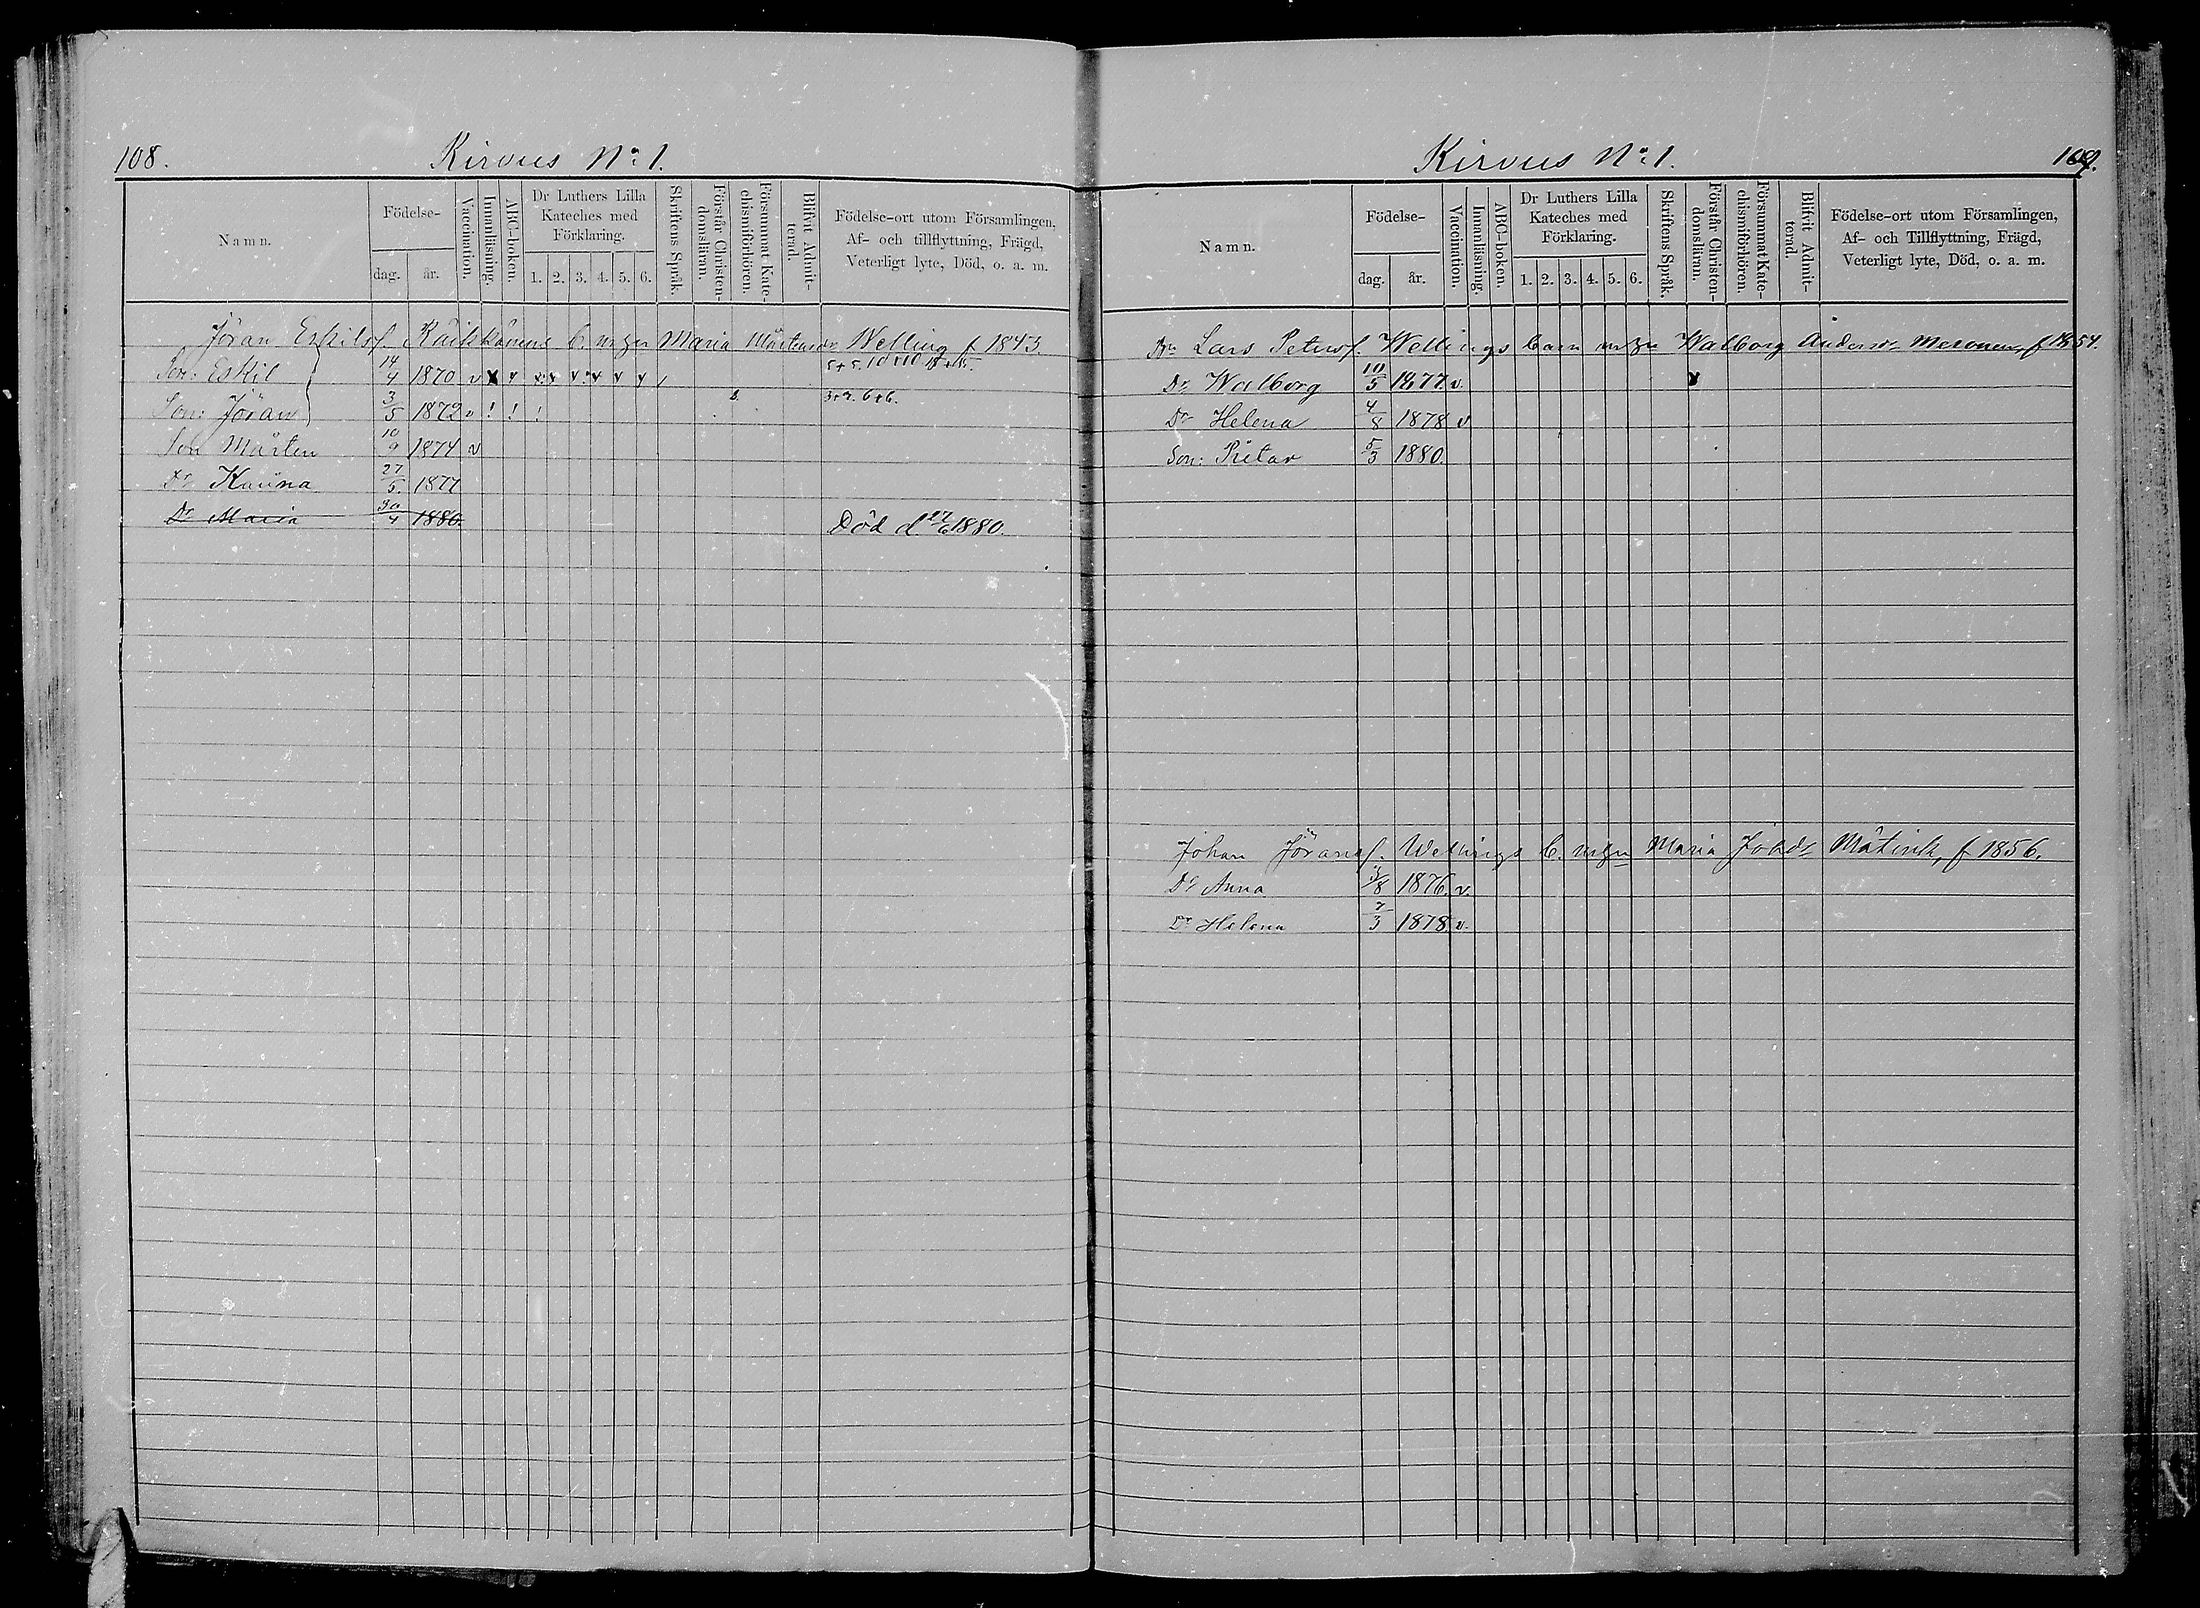 108. Kirvus No 1.
Namn. Födelse- dag. år. Vaccination. Innanläsning. ABC-boken. Dr Luthers Lilla Kateches med Förklaring. 1. 2. 3. 4. 5. 6. Skriftens Språk. Förstår Christendomsläran. Försummat Katechismiförhören. Blifvit Admitterad. Födelse-ort utom Församlingen, Af- och tillflyttning, Frägd, Veterligt lyte, Död, o. a. m.
Jöran Eskilsf. Räikkönens b. m. Maria Mårtensdr Welling f 1843.
Son: Eskil 14/4 1870 v x v v v v v v v 5+5. 10+10
Son: Jöran 3/5 1872 v ! ! ! 6+6.
Son Mårten 10/9 1874 v
Dr 27/5. 1877
Dr Maria 30/4 1880 Död d. 27/6 1880.
Kirvus No 1. 109.
Namn. Födelse- dag. år. Vaccination. Innanläsning. ABC-boken. Dr Luthers Lilla Kateches med Förklaring. 1. 2. 3. 4. 5. 6. Skriftens Språk. Förstår Christendomsläran. Försummat Katechismiförhören. Blifvit Admitterad. Födelse-ort utom Församlingen, Af- och Tillflyttning, Frägd, Veterligt lyte, Död, o. a. m.
Lars Petersf. Wellings barn Walborg Andersdr Meronen, f 1854.
Dr Walborg 10/5 1877 v.
Dr Helena 4/8 1878 v
Son: Pietar 5/3 1880.
Johan Jöransf. Wellings b. Maria f 1856.
Dr Anna 3/8 1876. v.
Dr Helena 7/3 1878 v.